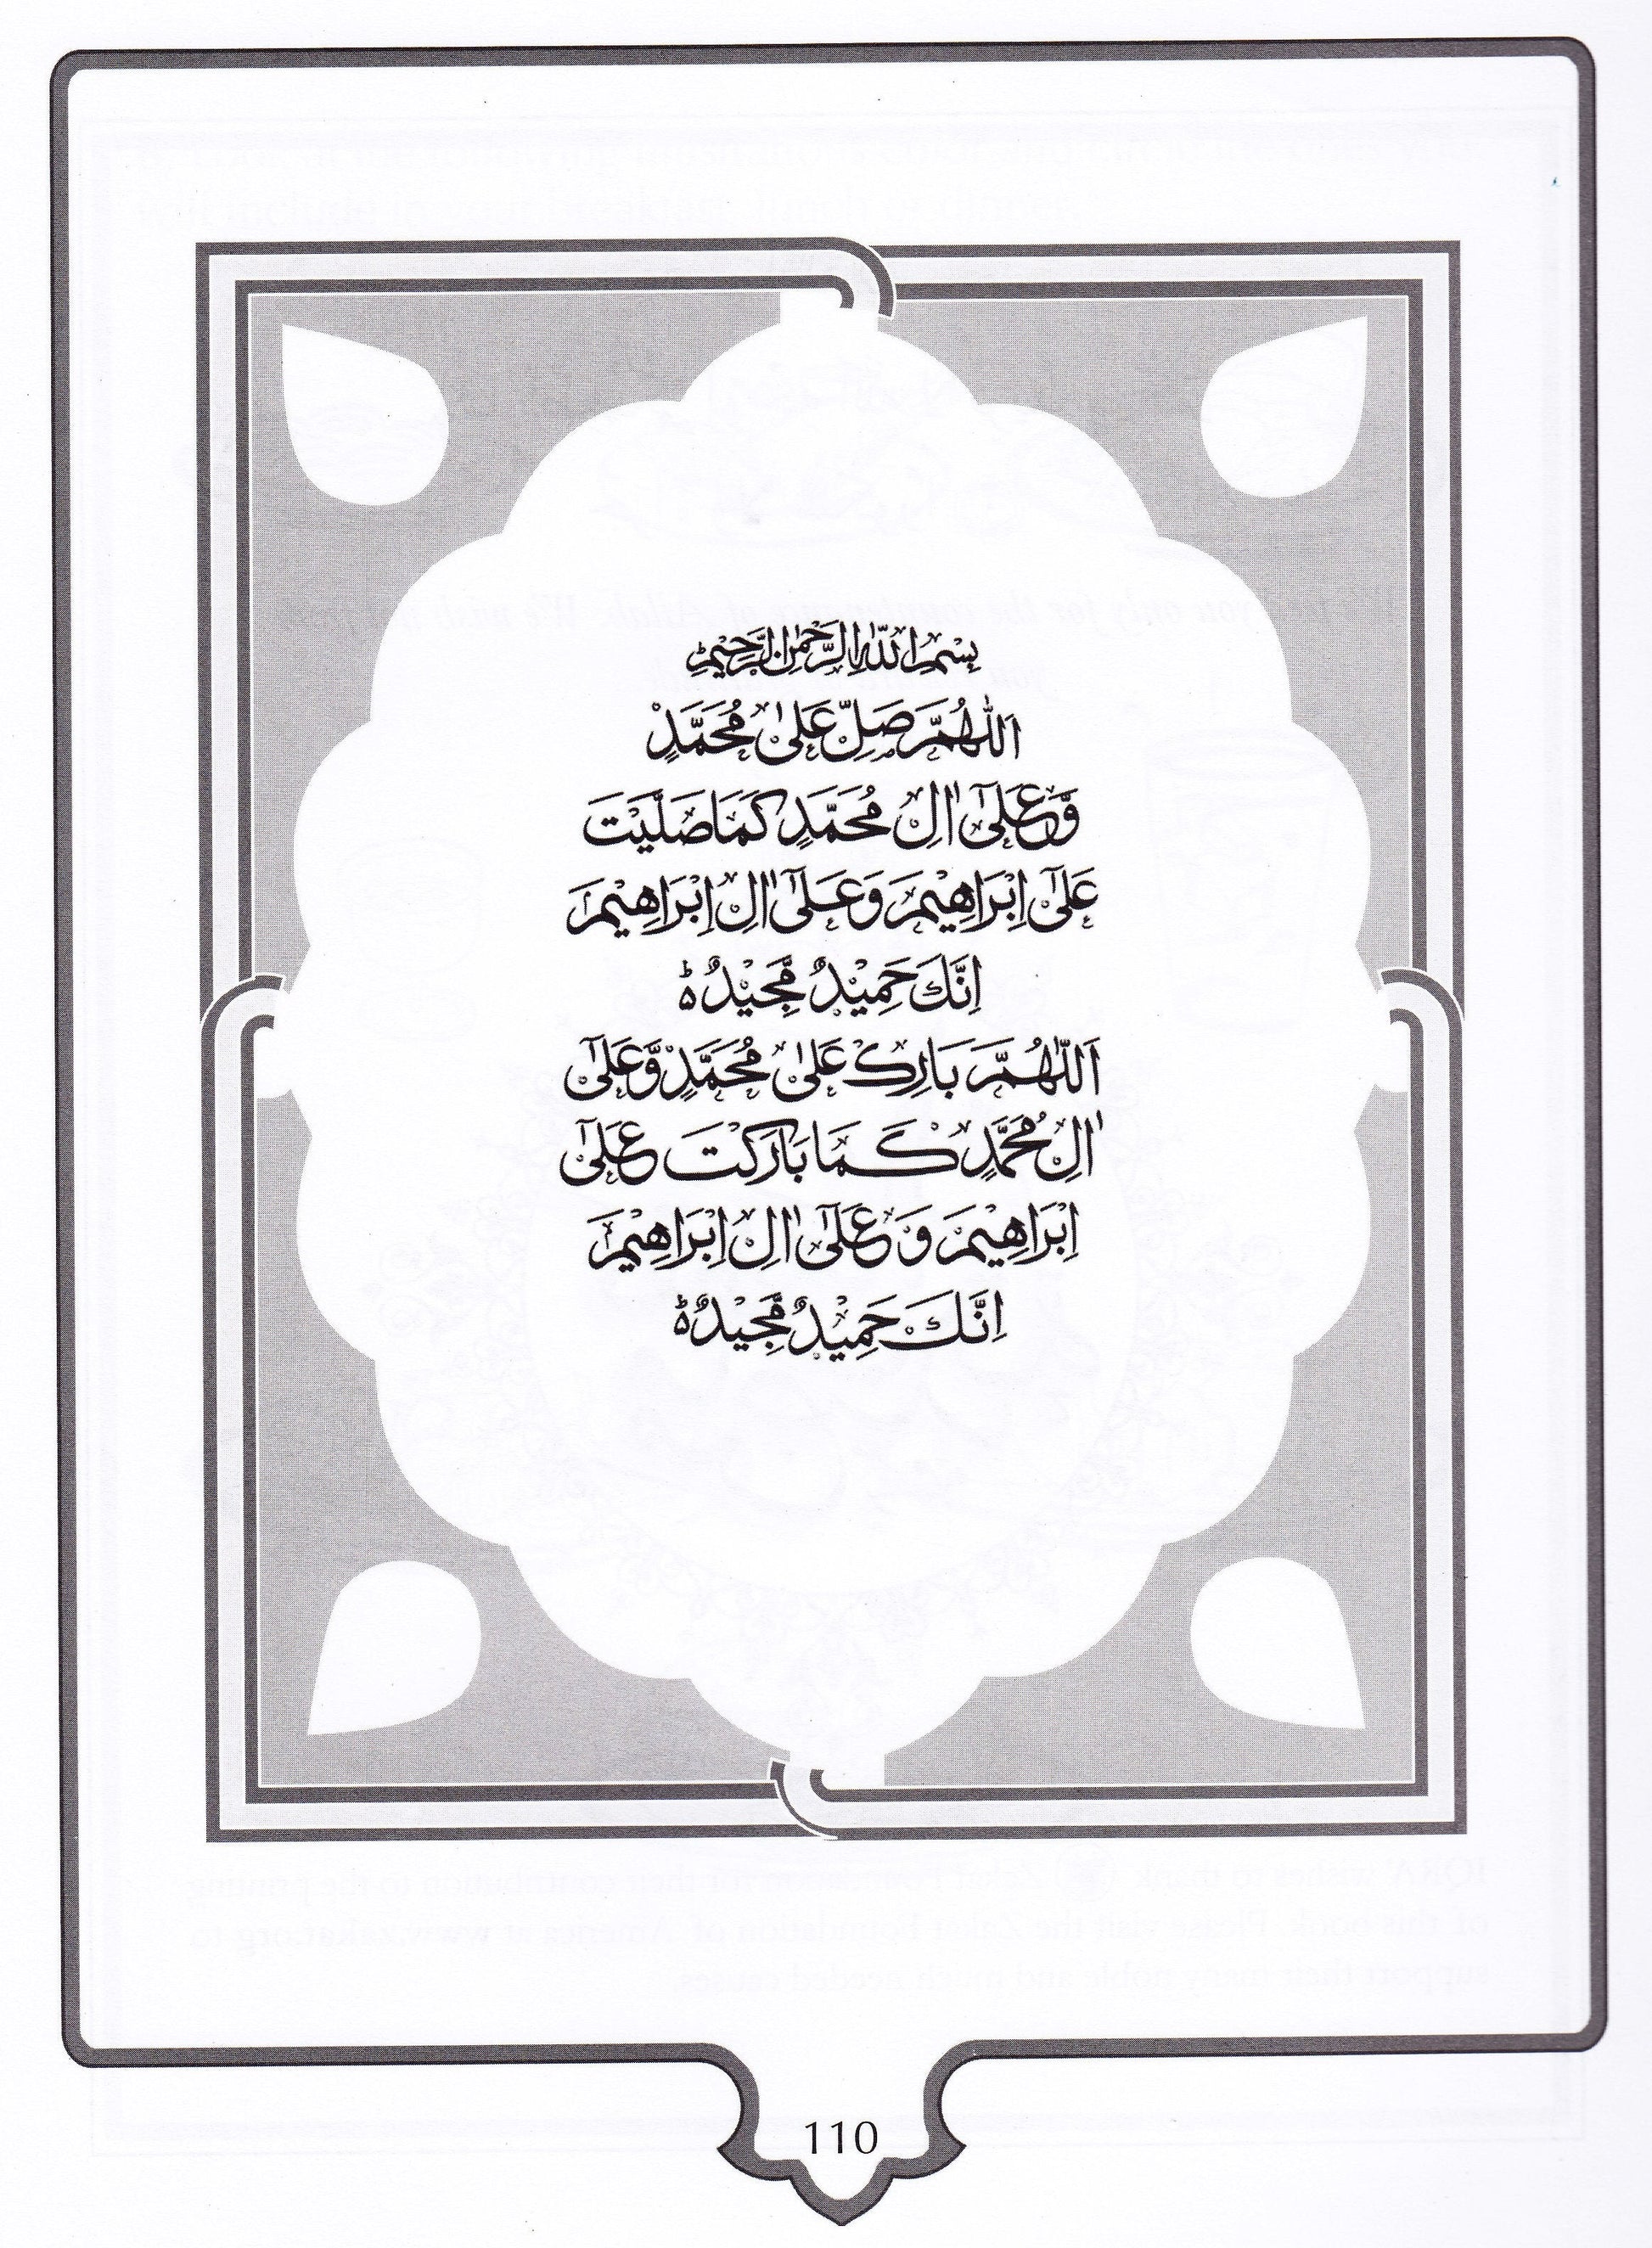 بِسْمِ اللهِ الرَّحْمٰنِ الرَّحِيْمِ
اَللّٰهُمَّ صَلِّ عَلٰى مُحَمَّدٍ
وَّعَلٰٓى اٰلِ مُحَمَّدٍ كَمَا صَلَّيْتَ
عَلٰٓى اِبْرَاهِيْمَ وَعَلٰٓى اٰلِ اِبْرَاهِيْمَ
اِنَّكَ حَمِيْدٌ مَّجِيْدٌ ؕ
اَللّٰهُمَّ بَارِكْ عَلٰى مُحَمَّدٍ وَّعَلٰٓى
اٰلِ مُحَمَّدٍ كَمَا بَارَكْتَ عَلٰٓى
اِبْرَاهِيْمَ وَعَلٰٓى اٰلِ اِبْرَاهِيْمَ
اِنَّكَ حَمِيْدٌ مَّجِيْدٌ ؕ
110